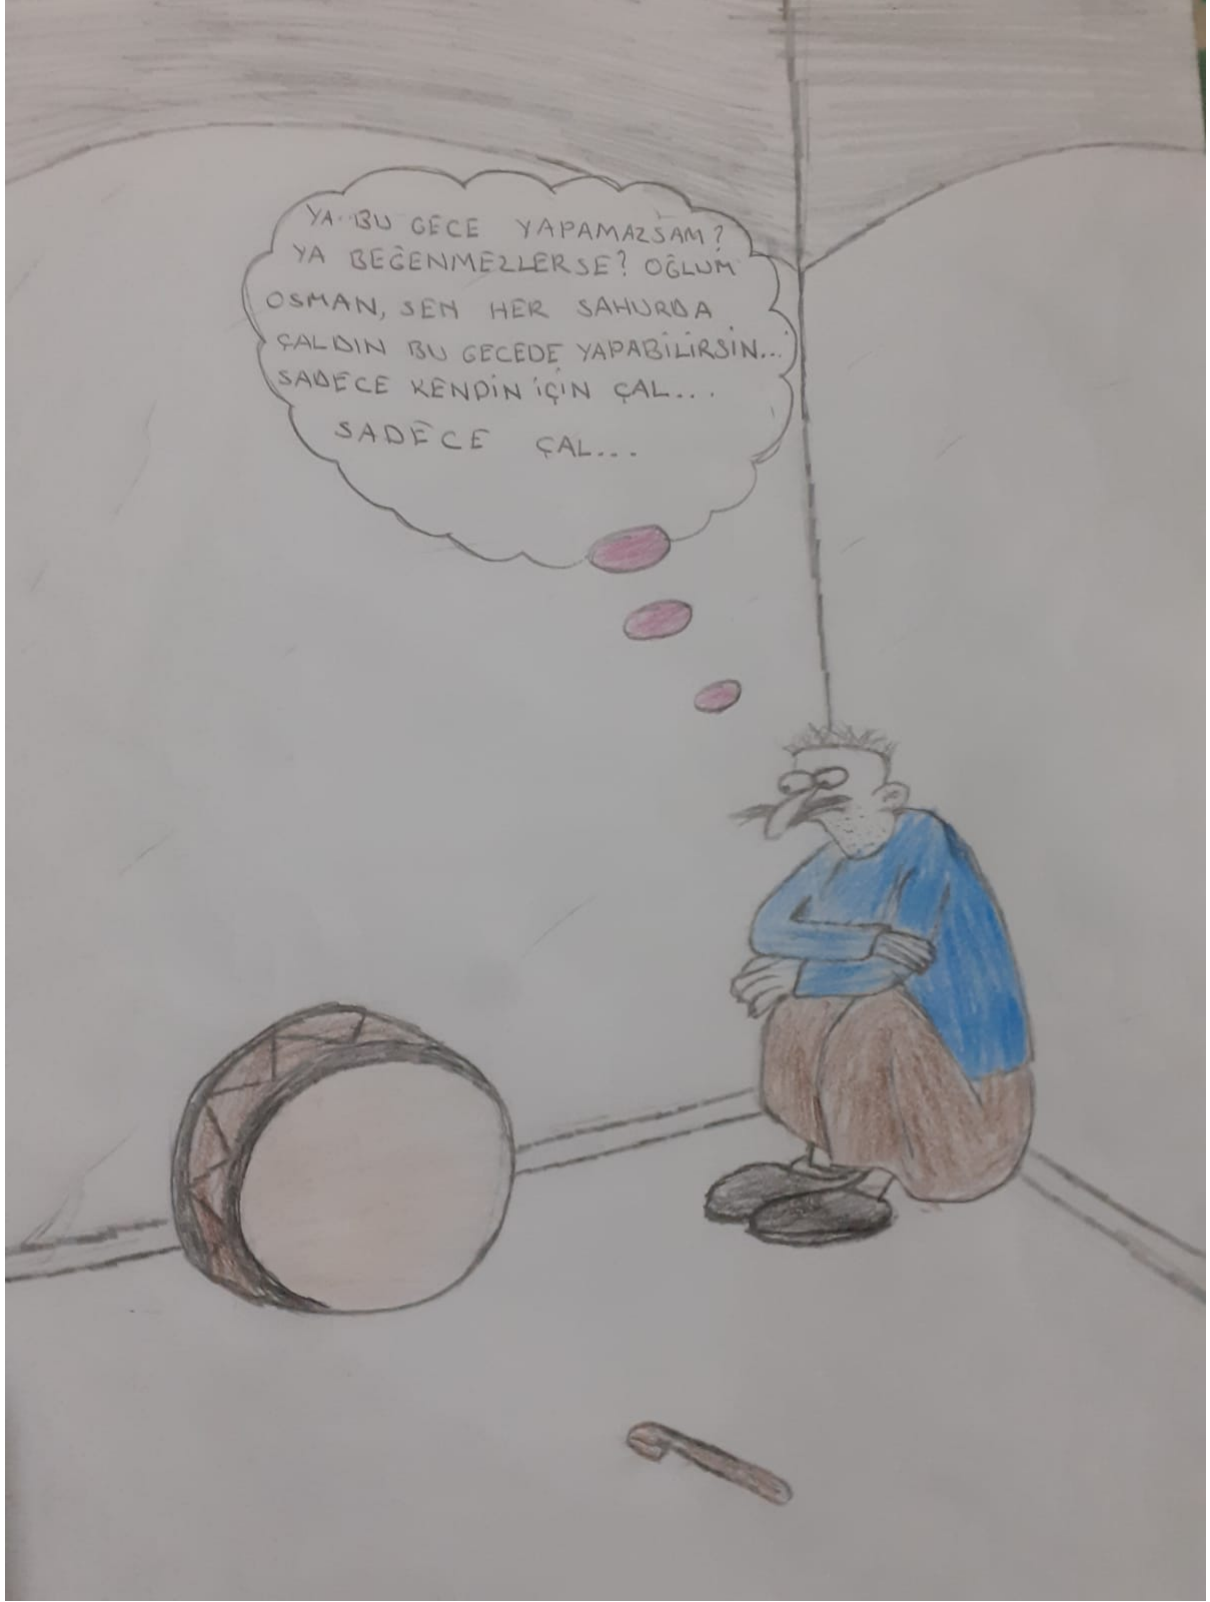 YA BU GECE YAPAMAZSAM?
YA BEĞENMEZLERSE? OĞLUM
OSMAN, SEN HER SAHURDA
ÇALDIN BU GECEDE YAPABİLİRSİN...
SADECE KENDİN İÇİN ÇAL...
SADECE ÇAL...